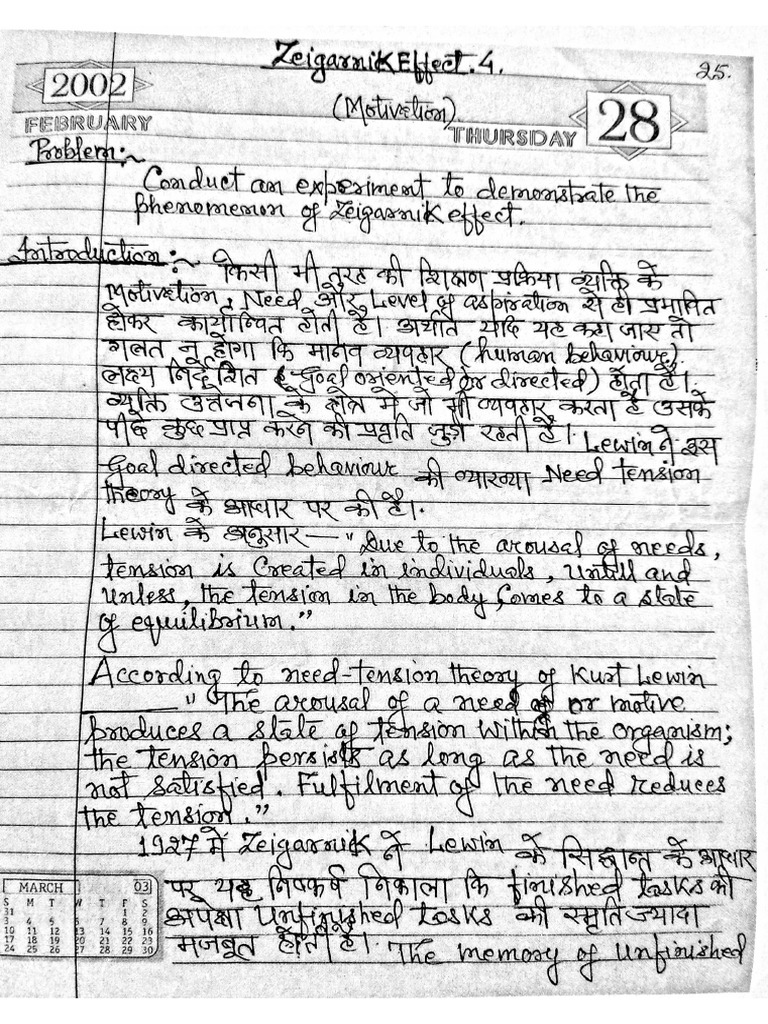 Zeigarnik Effect. 4.
25.
2002
(Motivation)
28
FEBRUARY
THURSDAY
Problem:~
Conduct an experiment to demonstrate the
phenomenon of Zeigarnik effect.
Introduction:~ किसी भी तरह की शिक्षण प्रक्रिया व्यक्ति के
Motivation, Need और Level of aspiration से ही प्रभावित
होकर कार्यान्वित होती है। अर्थात यदि यह कहा जाए तो
गलत न होगा कि मानव व्यवहार (human behaviour)
लक्ष्य निर्देशित (Goal oriented or directed) होता है।
व्यक्ति उत्तेजना के क्षेत्र में जो भी व्यवहार करता है उसके
पीछे कुछ प्राप्त करने की प्रवृति जुड़ी रहती है। Lewin ने इस
Goal directed behaviour की व्याख्या Need tension
theory के आधार पर की है।
Lewin के अनुसार — "Due to the arousal of needs,
tension is created in individuals, untill and
unless, the tension in the body comes to a state
of equilibrium."
According to need-tension theory of Kurt Lewin
— "The arousal of a need or motive
produces a state of tension within the organism;
the tension persists as long as the need is
not satisfied. Fulfilment of the need reduces
the tension."
1927 में Zeigarnik ने Lewin के सिद्धान्त के आधार
पर यह निष्कर्ष निकाला कि finished tasks की
अपेक्षा unfinished tasks की स्मृति ज्यादा
मजबूत होती है। The memory of unfinished
MARCH 03
S M T W T F S
31 1 2
3 4 5 6 7 8 9
10 11 12 13 14 15 16
17 18 19 20 21 22 23
24 25 26 27 28 29 30